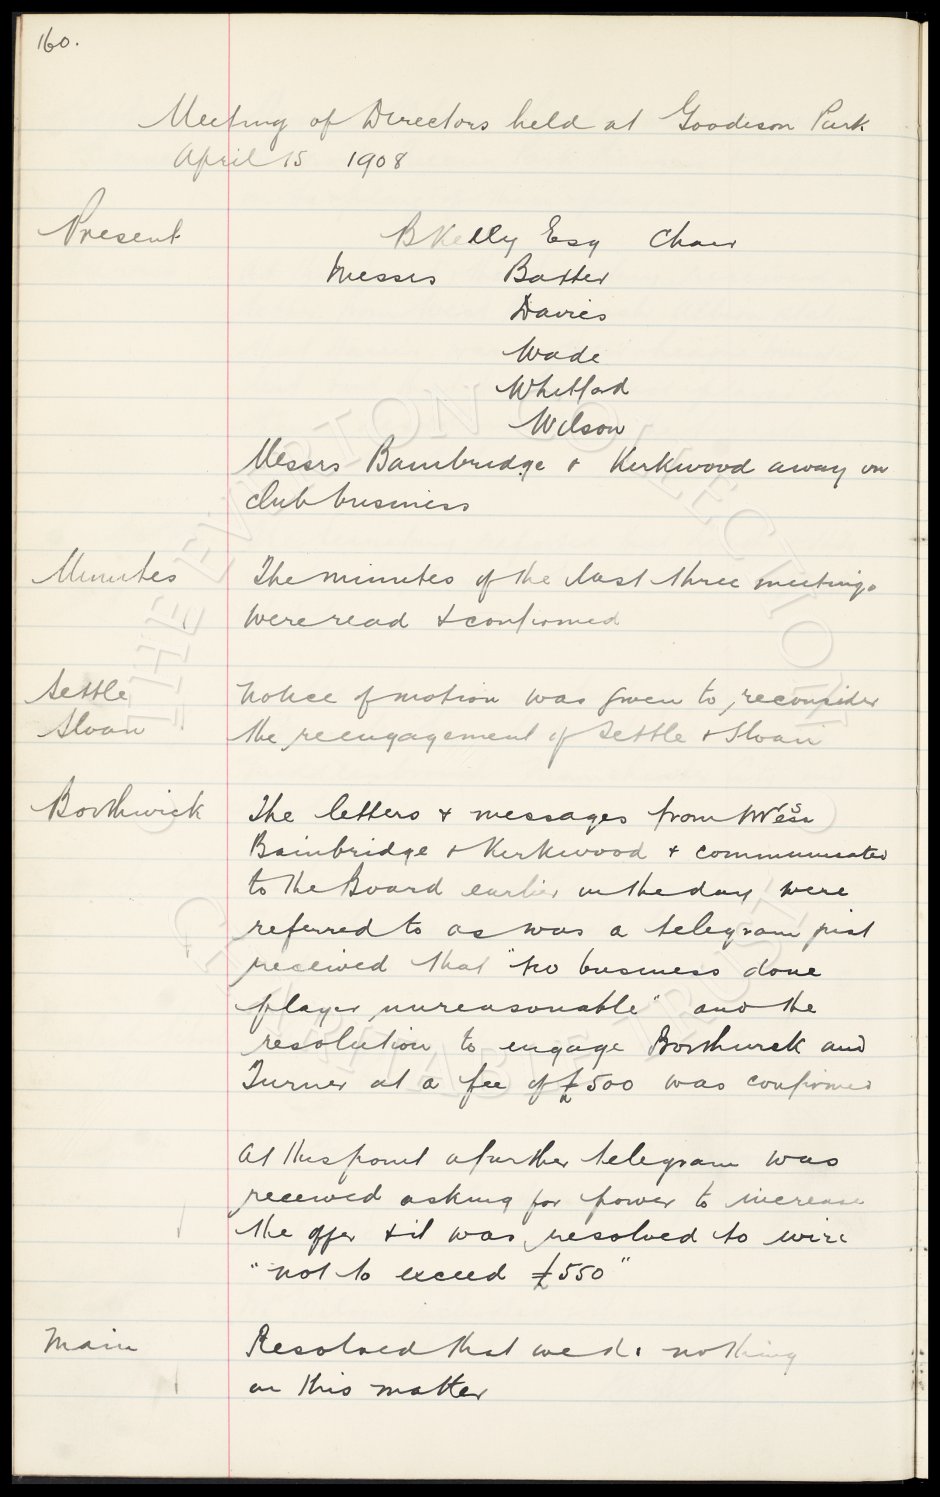 160.
Meeting of Directors held at Goodison Park
April 15 1908
Present B Kelly Esq Chair
Messrs Baxter
Davies
Wade
Whitford
Wilson
Messrs Bainbridge & Kirkwood away on
club business
Minutes The minutes of the last three meetings
were read & confirmed
Settle Notice of motion was given to reconsider
Sloan the reengagement of Settle & Sloan
Borthwick The letters & messages from Messrs
Bainbridge & Kirkwood & communicated
to the Board earlier in the day were
referred to as was a telegram just
received that "no business done
player unreasonable" and the
resolution to engage Borthwick and
Turner at a fee of £500 was confirmed
At this point a further telegram was
received asking for power to increase
the offer & it was resolved to wire
"not to exceed £550"
Main Resolved that we do nothing
in this matter
THE EVERTON COLLECTION
CHARITABLE TRUST